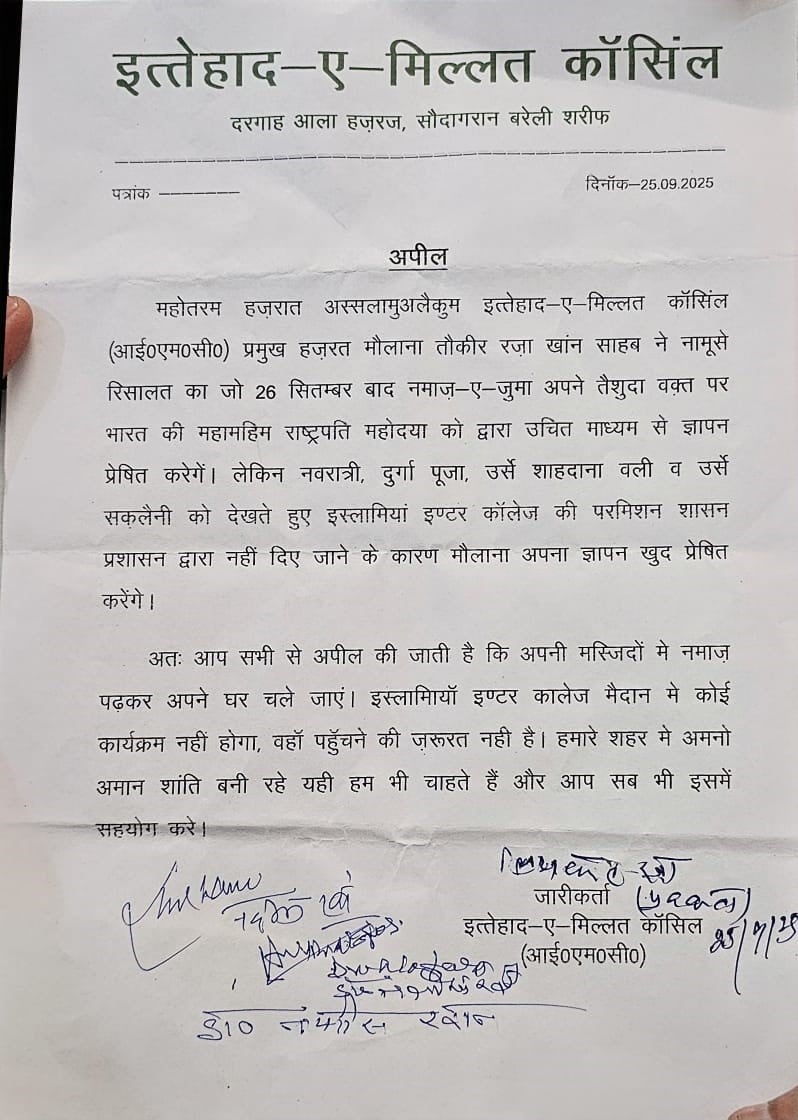 इत्तेहाद–ए–मिल्लत कॉसिंल
दरगाह आला हज़रज, सौदागरान बरेली शरीफ
पत्रांक ––––––– दिनॉक–25.09.2025
अपील
महोतरम हज़रात अस्सलामुअलैकुम इत्तेहाद–ए–मिल्लत कॉसिंल
(आई0एम0सी0) प्रमुख हज़रत मौलाना तौकीर रज़ा खांन साहब ने नामूसे
रिसालत का जो 26 सितम्बर बाद नमाज़–ए–जुमा अपने तैशुदा वक़्त पर
भारत की महामहिम राष्ट्रपति महोदया को द्वारा उचित माध्यम से ज्ञापन
प्रेषित करेगें। लेकिन नवरात्री, दुर्गा पूजा, उर्से शाहदाना वली व उर्से
सक़लैनी को देखते हुए इस्लामियां इण्टर कॉलेज की परमिशन शासन
प्रशासन द्वारा नहीं दिए जाने के कारण मौलाना अपना ज्ञापन खुद प्रेषित
करेंगे।
अतः आप सभी से अपील की जाती है कि अपनी मस्जिदों मे नमाज़
पढ़कर अपने घर चले जाएं। इस्लामिायॉ इण्टर कालेज मैदान मे कोई
कार्यक्रम नहीं होगा, वहॉ पहुॅचने की ज़रूरत नही है। हमारे शहर मे अमनो
अमान शांति बनी रहे यही हम भी चाहते हैं और आप सब भी इसमें
सहयोग करे।
जारीकर्ता
इत्तेहाद–ए–मिल्लत कॉसिंल
(आई0एम0सी0)
डा0 नफीस